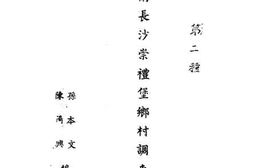 第二種
長沙崇禮堡鄉村調查
孫本文
陳